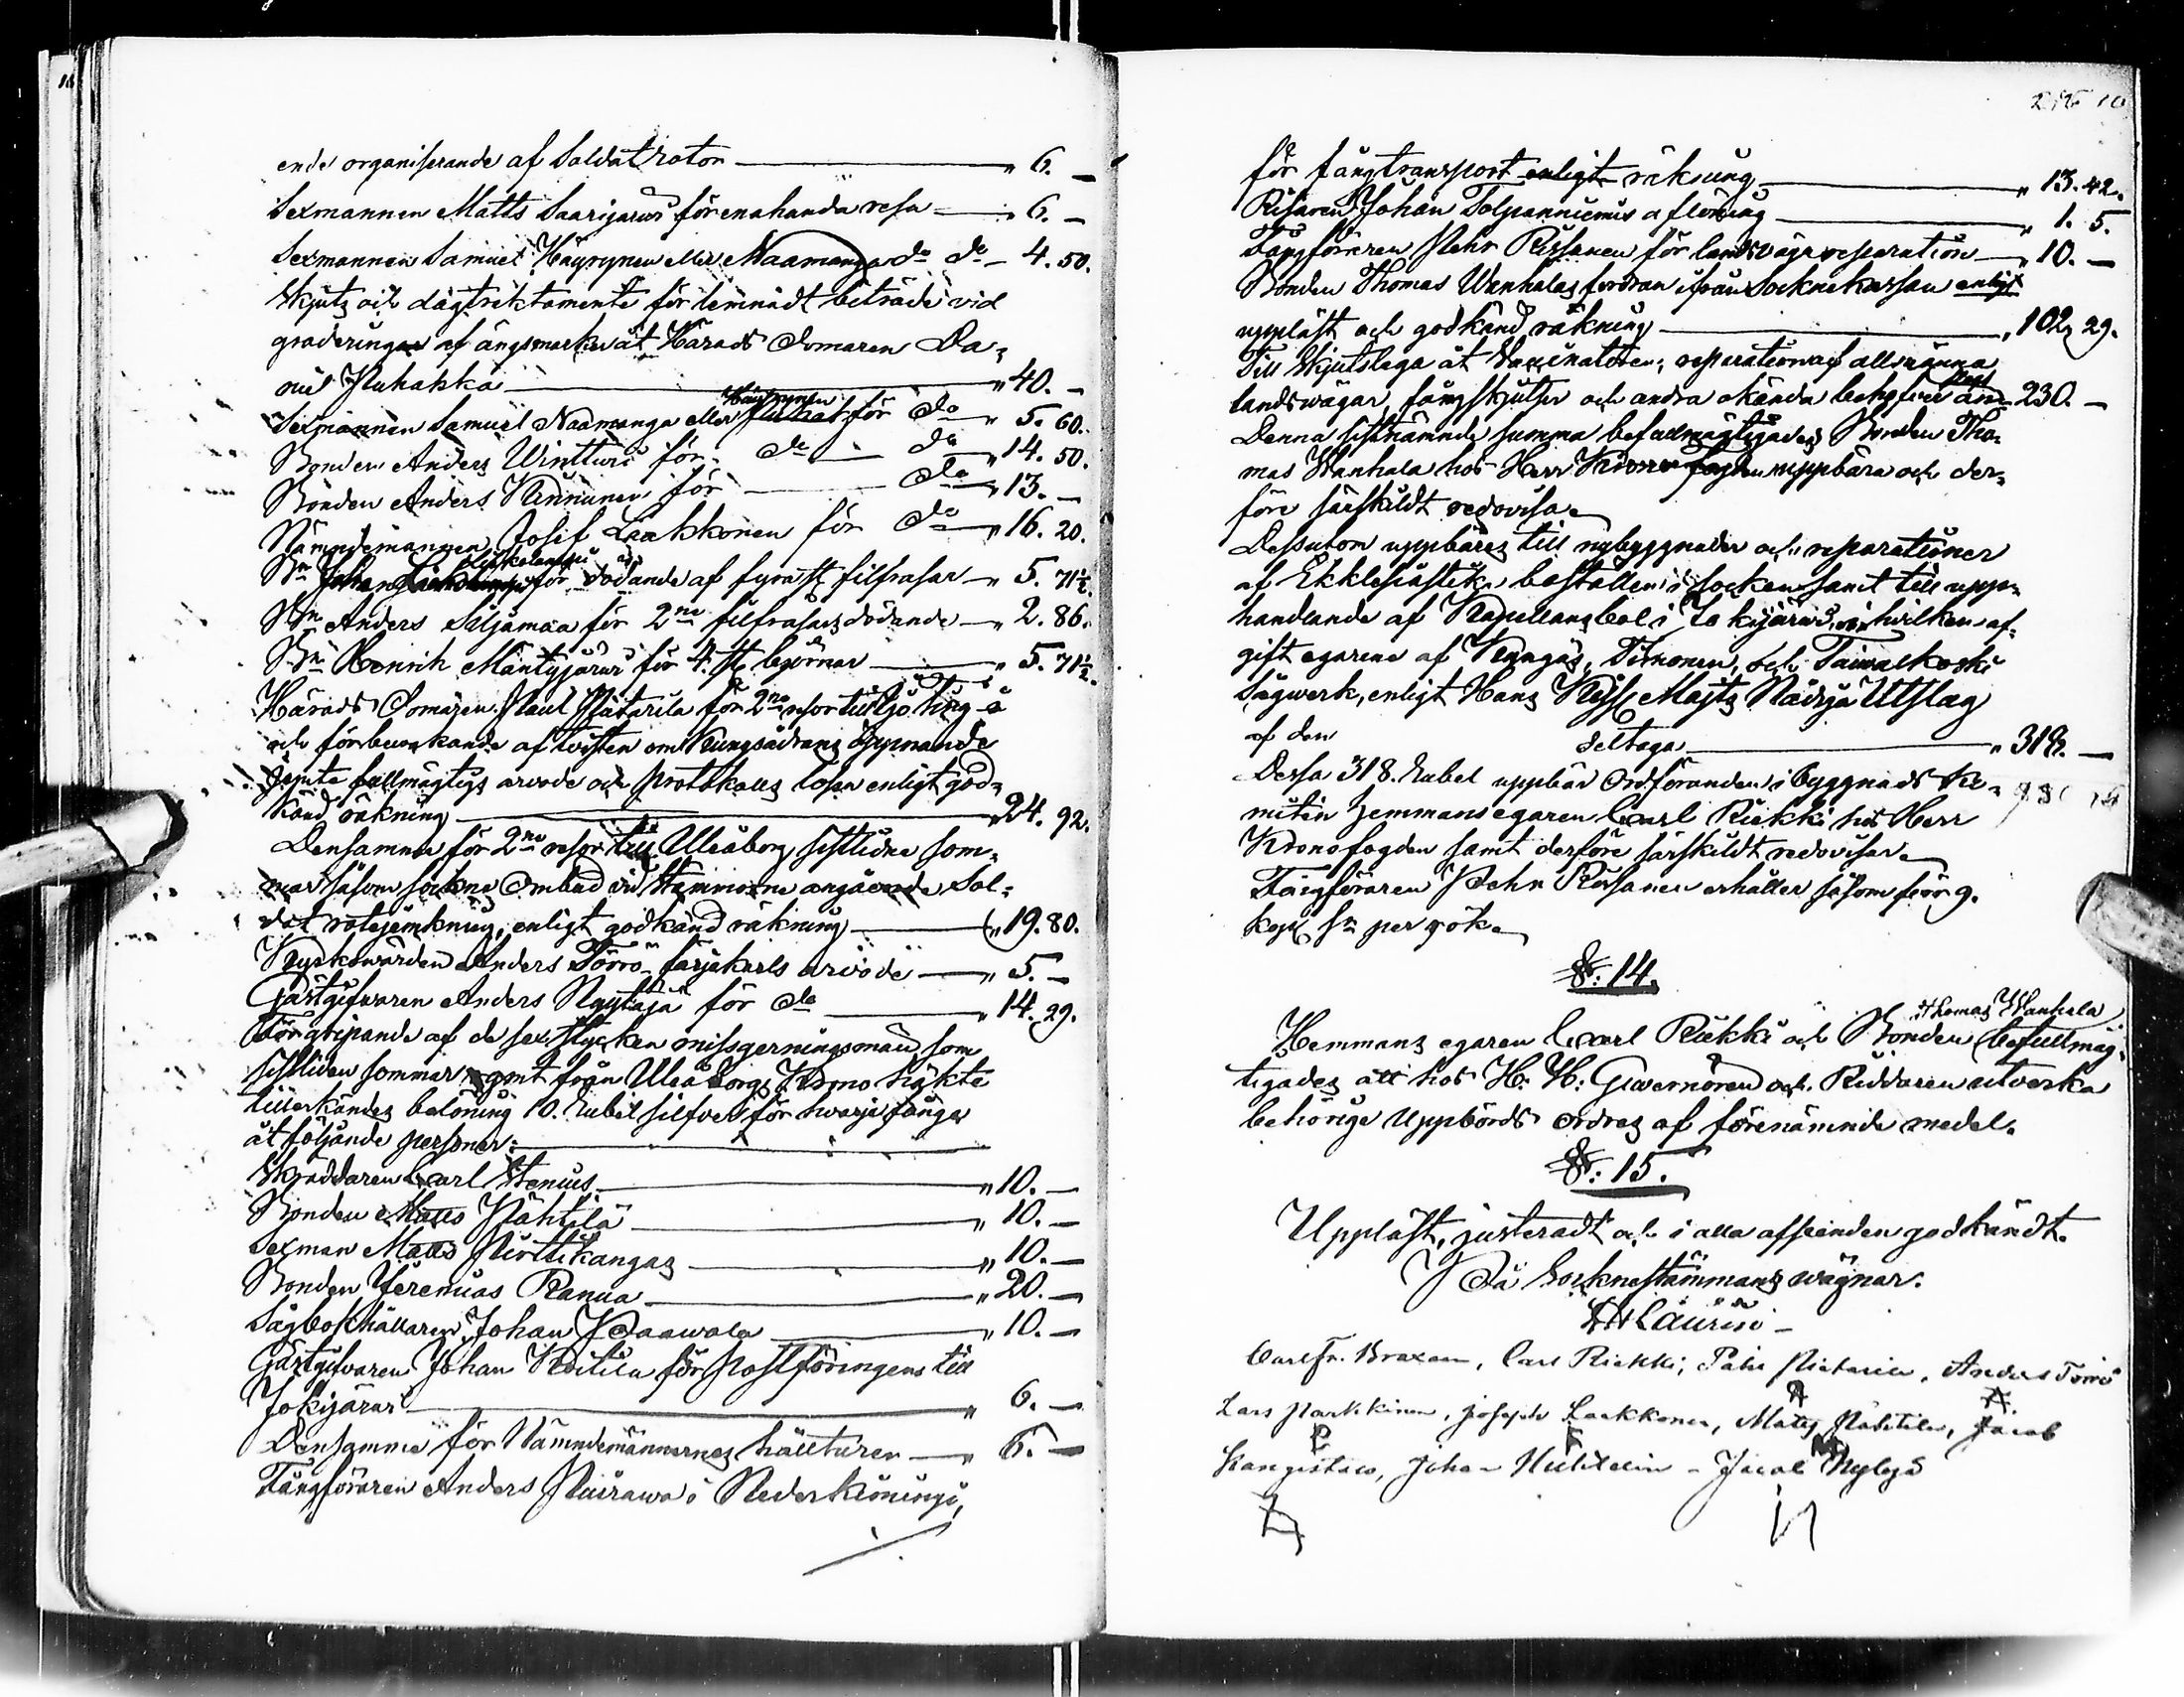 ende organiserande af Soldat rotor — " 6. —
Sexmannen Matts Saarijärwi för enahanda resa — " 6. —
Sexmannen Samuel Häyrynen eller Naamanga do do — 4. 50.
Skjuts och dagtraktamente för lemnadt biträde vid
graderingen af ängsmarker åt Härads Domaren Da-
niel Puhakka — " 40. —
Häyrynen
Sexmannen Samuel Naamanga eller för do " 5. 60.
Bonden Anders Wintturi för do — do " 14. 50.
Bonden Anders Kinnunen för — do " 13. —
Nämndemannen Josef Laakkonen för do " 16. 20.
Bn Johan för dödande af fyra st filfrasar — " 5. 71½.
Bn Anders Siljamaa för 2ne filfrasars dödande — " 2. 86.
Bn Henrik Mäntyjärwi för 4. st björnar — " 5. 71½.
Härads Domaren Paul Pätärilä för 2ne resor till Ijo ting å
och förbevakande af twisten om Kungsådrans öppnande
jemte fullmägtigs arvode och Protokolls lösen enligt god-
känd räkning — " 24. 92.
Densamme för 2ne resor till Uleåborg sistlidne som-
mar såsom sockne Ombud vid Stämmorne angående Sol-
dat rotejemkning, enligt godkänd räkning — " 19. 80.
Kyrkowärden Anders Törrö färjekarls arvode — " 5. —
Gästgifwaren Anders Nyytäjä för do — " 14. 29.
För gripande af de sex stycken missgerningsmän, som
sistliden sommar rymt från Uleåborgs Krono häkte
tillerkändes belöning 10. Rubel silfver för hwarje fånge
åt följande personer: —
Skräddaren Carl Stenius — " 10. —
Bonden Matts Pähtilä — " 10. —
Sexman Matts Pirttikangas — " 10. —
Bonden Jeremias Ranua — " 20. —
Sågbokhållaren Johan Paawola — " 10. —
Gästgifvaren Johan Koitila för Postföringens till
Jokijärwi — " 6. —
Densamme för Nämndemännernes hållturer — " 6. —
Fångföraren Anders Puirawa i Nederkiiminki,
för fångtransport enligt räkning — " 13. 42.
Risaren Johan Tolpanniemis aflöning — " 1. 5.
Fångföraren Pehr Rissanen för landsvägsreparation — " 10. —
Bonden Thomas Wanhalas fordran ifrån Socknekassan enligt
uppläst och godkänd räkning — " 102, 29.
Till Skjutslega åt Vaccinatören, reparation af allmänna
landswägar, fångskjutser och andra okända behof 230. —
Denna sistnämnde summa befullmägtigades Bonden Tho-
mas Wanhala hos Herr Kronofogden uppbära och der-
före särskildt redovisa.
Dessutom uppbäres till nybyggnader och reparationer
af Ekklesiastike boställen i socken samt till upp-
handlande af Kapellansbol i Jokijärwi, i hwilken af-
gift egarene af Kurngäs, Tirnonen, och Taiwalkoski
Sågwerk, enligt Hans Kejs. Majts Nådiga Utslag
af den deltaga — " 318. —
Dessa 318. Rubel uppbär Ordföranden i byggnads Ko-
miten Hemmansegaren Carl Riekki hos Herr
Kronofogden samt derföre särskildt redovisar.
Fångföraren Pehr Rissanen erhåller såsom förr 9.
kop. Sr per rök.
§: 14.
Thomas Wanhala
Hemmans egaren Carl Riekki och Bonden befullmäg-
tigades att hos H. H: Guvernören och Riddaren utverka
behörige Uppbörds ordres af förenämnde medel.
§: 15.
Uppläst, justeradt och i alla afseenden godkändt.
På Socknestämmans wägnar:
Laurin
Carl Fr. Braxen, Carl Riekki, Anders Törrö
Lars Parkkinen, Joseph Laakkonen, Matts Pähtilä, Jacob
Kangistao, Johan – Jacob